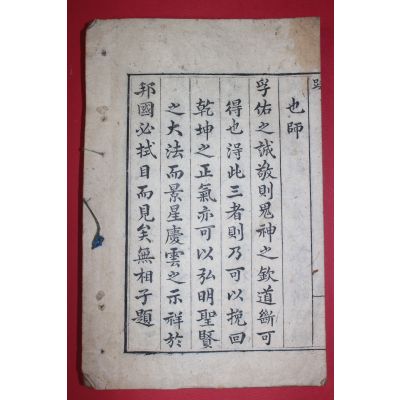 也師
孚佑之誠敬則鬼神之欽道斷可
得也得此三者則乃可以挽回
乾坤之正氣亦可以弘明聖賢
之大法而景星慶雲之示祥於
邦國必拭目而見矣無相子題